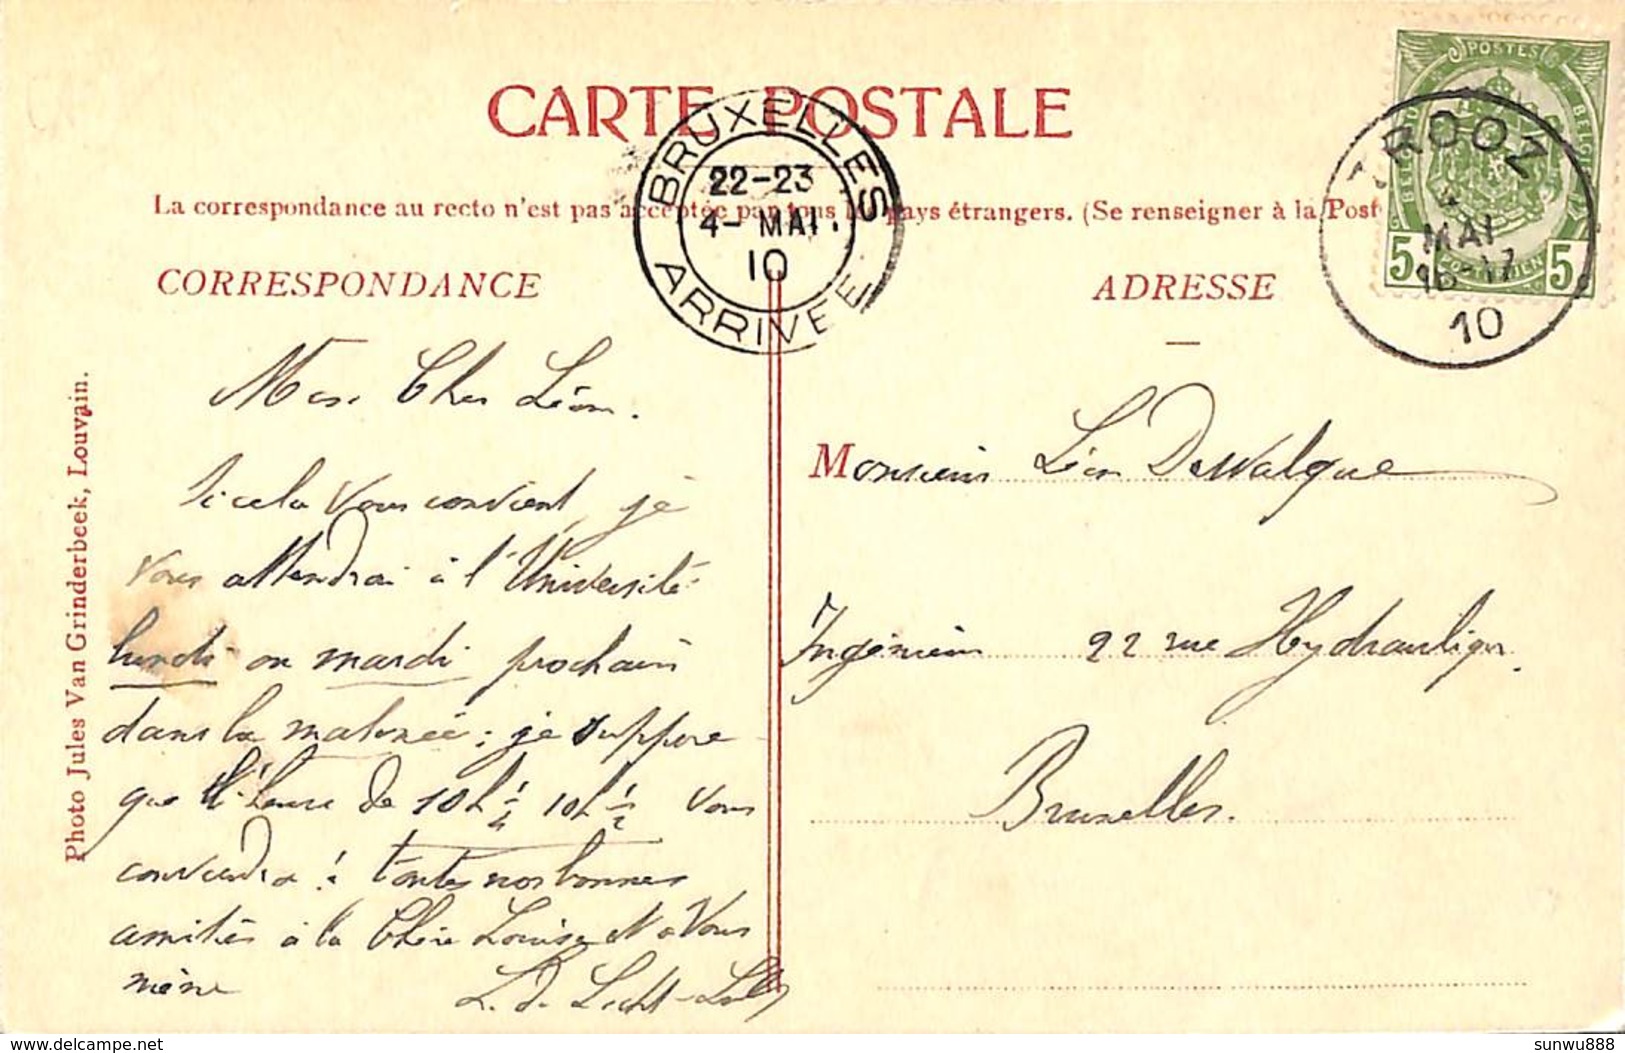 CARTE POSTALE
BRUXELLES
22-23
4- MAI.
10
ARRIVÉE
TROOZ
4
MAI
16-17
10
POSTES
BELGIQUE
BELGIE
5 POSTERIJEN 5
La correspondance au recto n'est pas acceptée par tous les pays étrangers. (Se renseigner à la Post
CORRESPONDANCE
ADRESSE
Photo Jules Van Grinderbeek, Louvain.
Mon Cher Léon.
Si cela vous convient, je
vous attendrai à l'Université
lundi ou mardi prochain
dans la matinée; je suppose
que l'heure de 10h 1/4 10h 1/2 vous
conviendra! toutes nos bonnes
amitiés à la Chère Louise et à Vous
même
L. d.
Monsieur Léon Dewalque
Ingénieur 22 rue Hydraulique
Bruxelles.
sunwu888